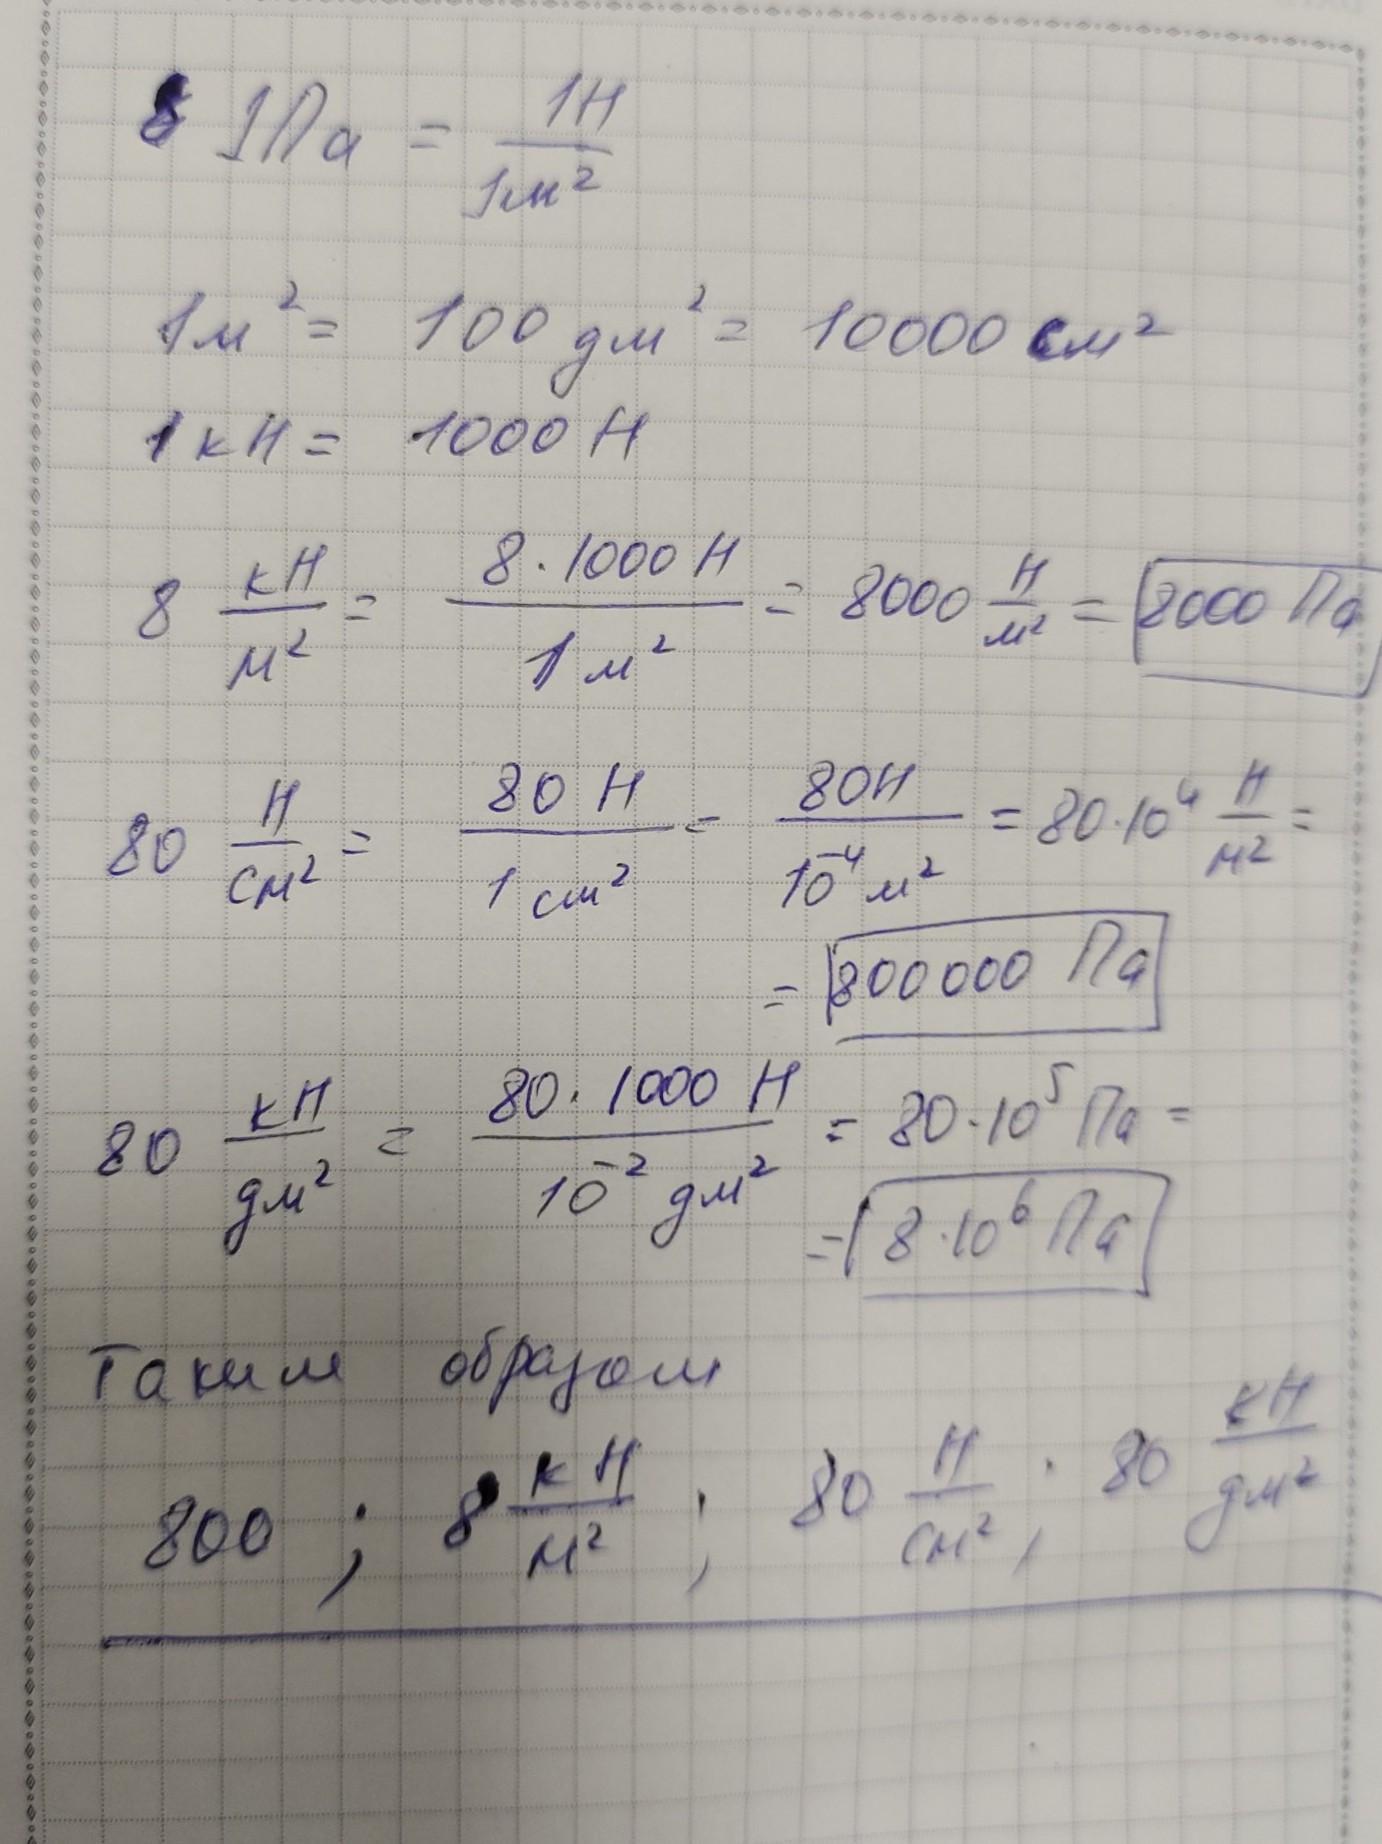 1Па = 1Н / 1м²
1м² = 100 дм² = 10000 см²
1кН = 1000 Н
8 кН/м² = 8·1000 Н / 1 м² = 8000 Н/м² = 8000 Па
80 Н/см² = 80 Н / 1 см² = 80Н / 10⁻⁴ м² = 80·10⁴ Н/м² =
= 800000 Па
80 кН/дм² = 80·1000 Н / 10⁻² дм² = 80·10⁵ Па =
= 8·10⁶ Па
Таким образом
800 ; 8 кН/м² ; 80 Н/см² ; 80 кН/дм²